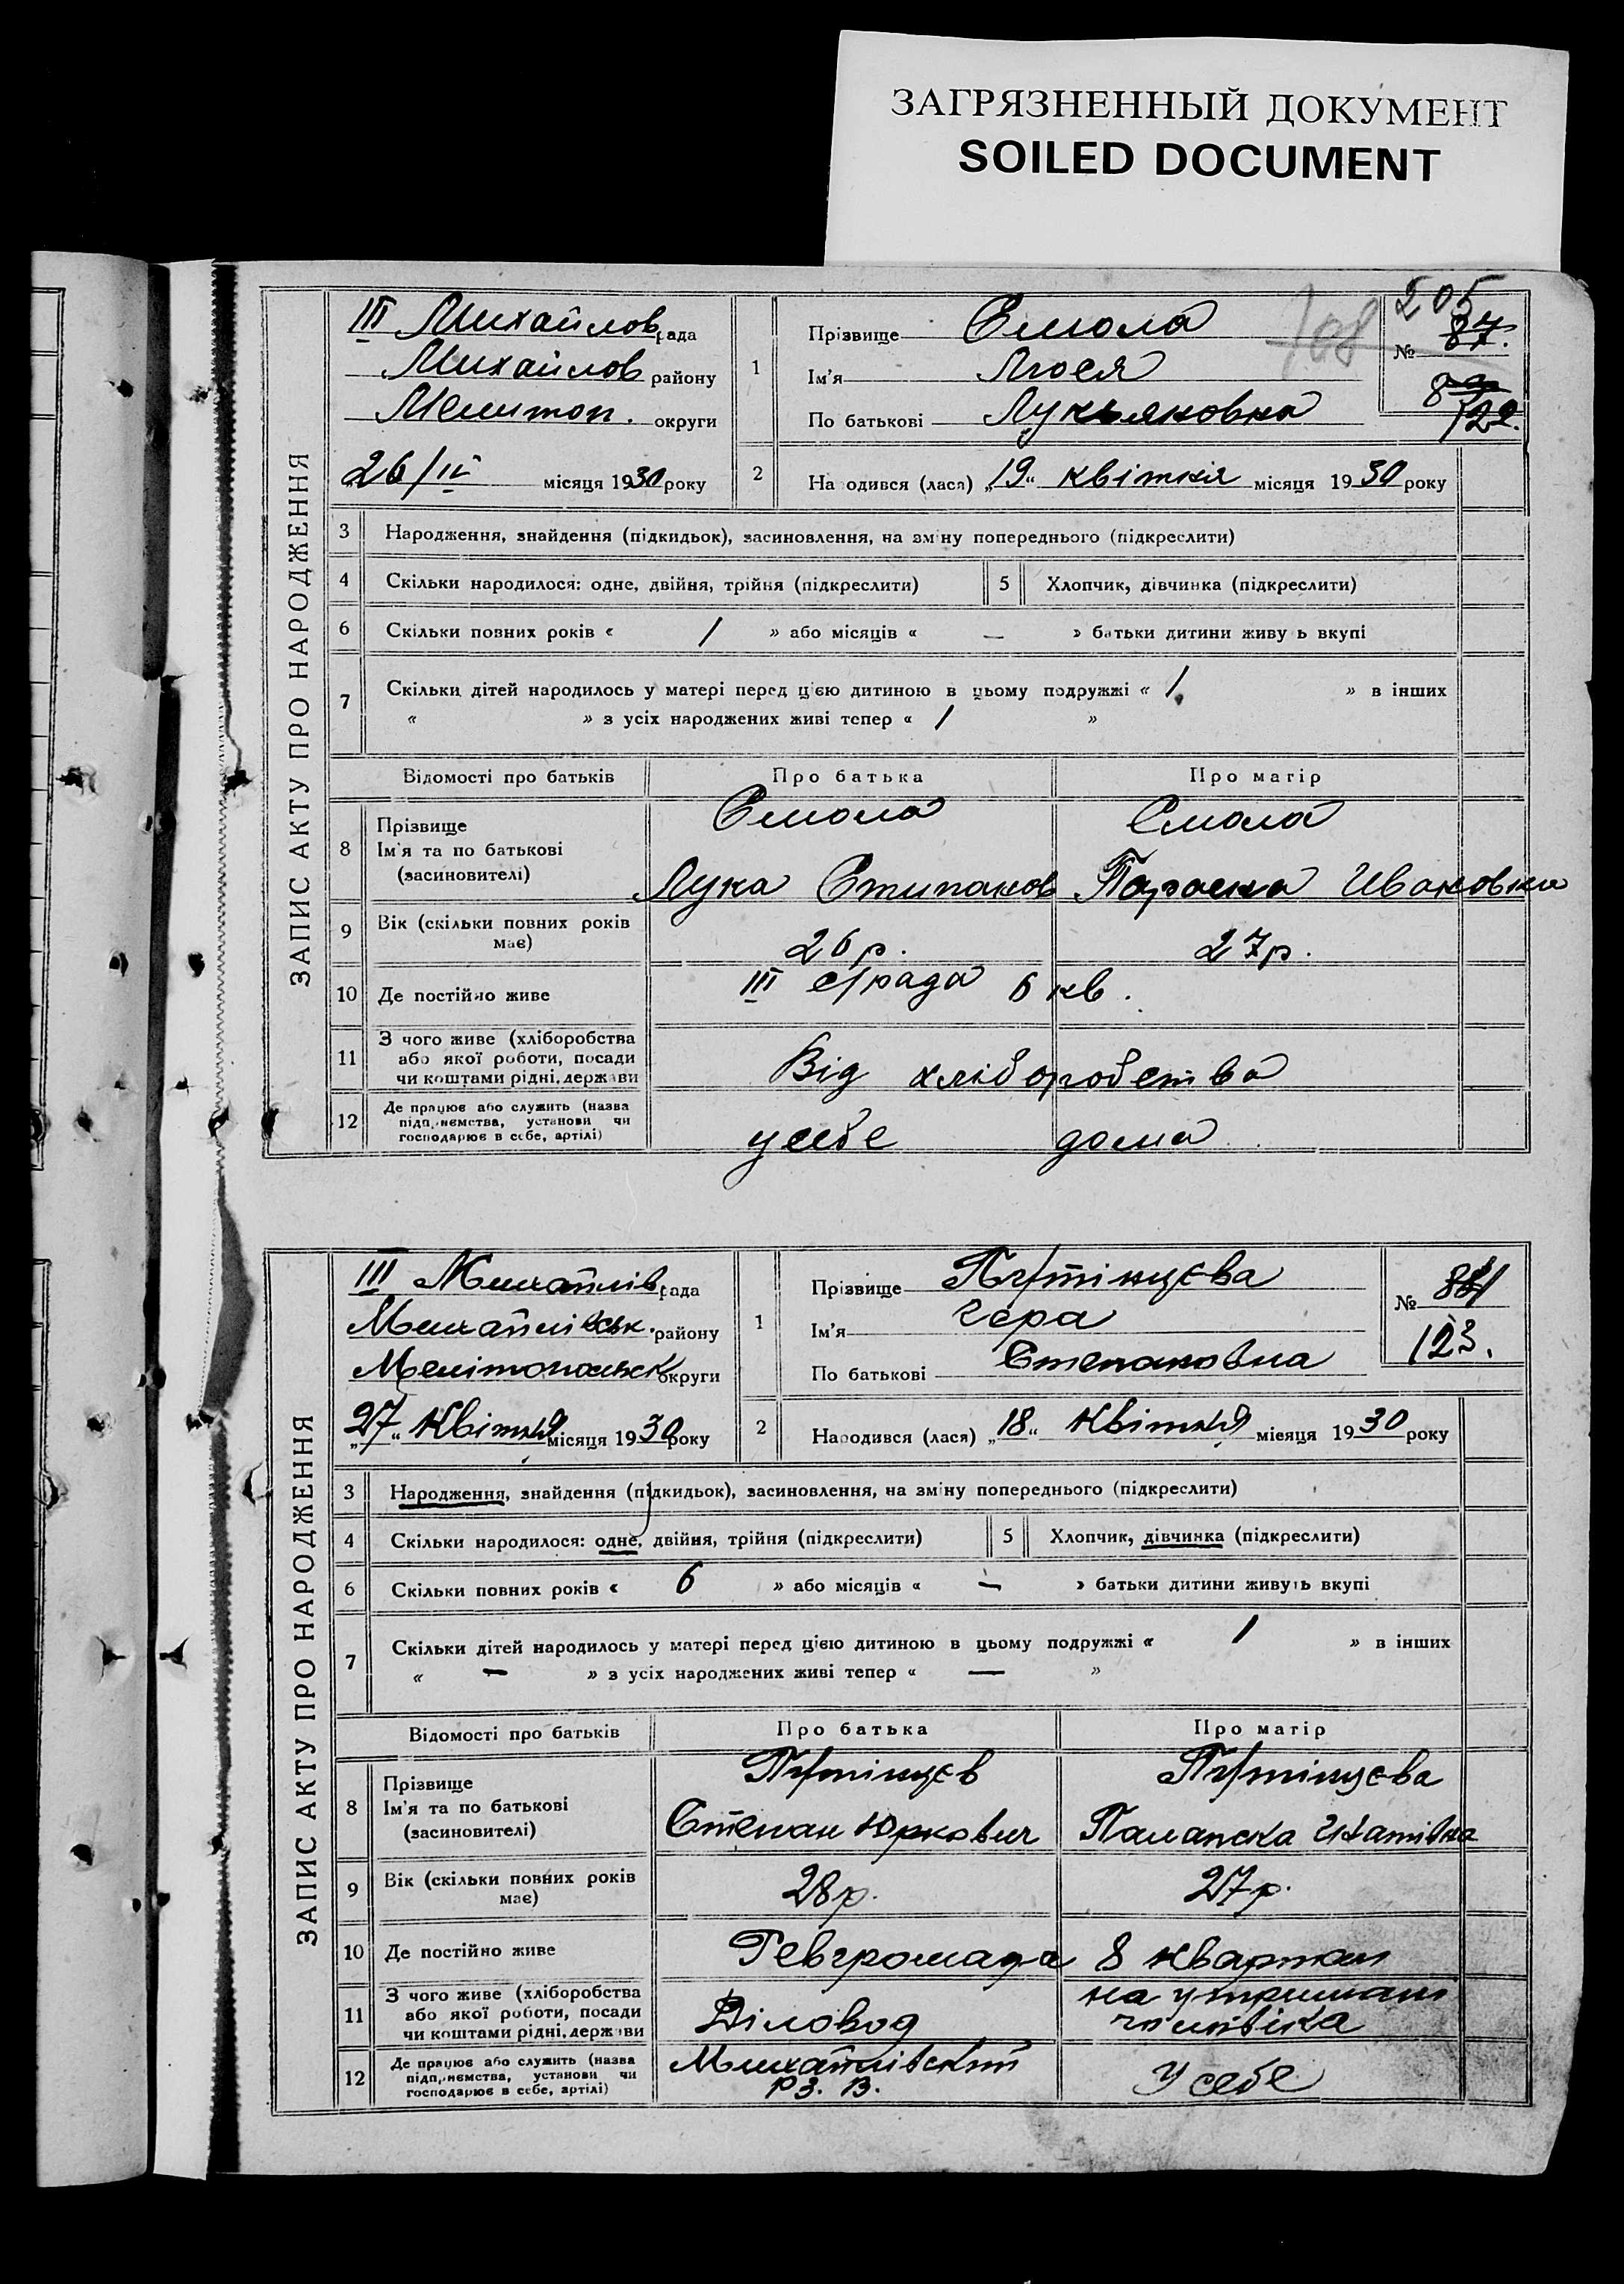 ЗАГРЯЗНЕННЫЙ ДОКУМЕНТ
SOILED DOCUMENT
205
108
ЗАПИС АКТУ ПРО НАРОДЖЕННЯ
III Михайлов рада
Михайлов району
Мелитоп. округи
26/IV місяця 1930 року
1 Прізвище Смола
Ім'я Люся
По батькові Лукьяновна
№ 87.
122.
2 На одився (лася) „19“ квітня місяця 1930 року
3 Народження, знайдення (підкидьок), засиновлення, на зміну попереднього (підкреслити)
4 Скільки народилося: одне, двійня, трійня (підкреслити) 5 Хлопчик, дівчинка (підкреслити)
6 Скільки повних років « 1 » або місяців « — » батьки дитини живу ь вкупі
7 Скільки дітей народилось у матері перед цією дитиною в цьому подружжі « 1. » в інших
« » з усіх народжених живі тепер « 1 »
Відомості про батьків Про батька Про матір
8 Прізвище Смола Смола
Ім'я та по батькові
(засновителі) Лука Стипанов Параска Ивановна
9 Вік (скільки повних років має) 26 р. 27 р.
10 Де постійно живе III с/рада 6 кв.
11 З чого живе (хліборобства
або якої роботи, посади
чи коштами рідні, держави Від хліборобства
12 Де працює або служить (назва
підприємства, установи чи
господарює в себе, артілі) усебе дома
ЗАПИС АКТУ ПРО НАРОДЖЕННЯ
III Михайлів рада
Михайлівськ. району
Мелітопольськ округи
„27“ Квітня місяця 1930 року
1 Прізвище Путінцєва
Ім'я
По батькові Степановна
№ 881
123.
2 Народився (лася) „18“ Квітня місяця 1930 року
3 Народження, знайдення (підкидьок), засиновлення, на зміну попереднього (підкреслити)
4 Скільки народилося: одне, двійня, трійня (підкреслити) 5 Хлопчик, дівчинка (підкреслити)
6 Скільки повних років « 6 » або місяців « — » батьки дитини живуть вкупі
7 Скільки дітей народилось у матері перед цією дитиною в цьому подружжі « 1 » в інших
« — » з усіх народжених живі тепер « — »
Відомості про батьків Про батька Про матір
8 Прізвище Путінцєв Путінцєва
Ім'я та по батькові Степан Юркович
(засиновителі)
9 Вік (скільки повних років має) 28 р. 27 р.
10 Де постійно живе Ревгромада 8 квартал
11 З чого живе (хліборобства
або якої роботи, посади
чи коштами рідні, держави Діловод на утриманні чоловіка
12 Де працює або служить (назва
підприємства, установи чи
господарює в себе, артілі) Михайлівский У себе